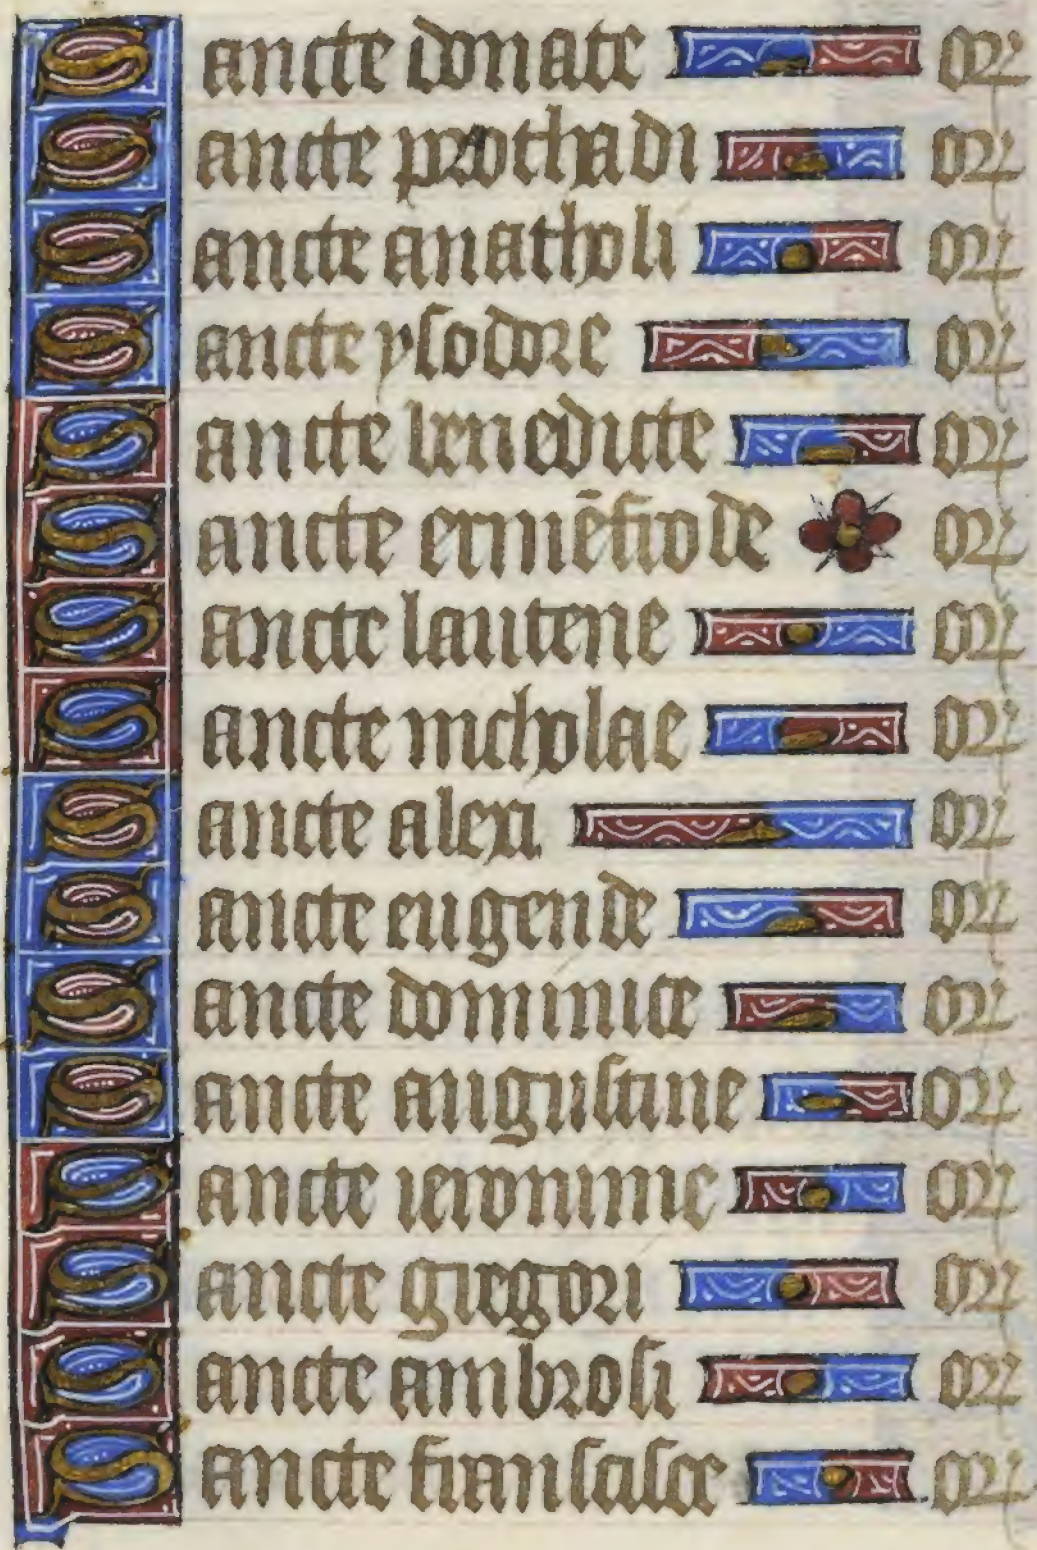 Sancte donate or
Sancte prothadi or
Sancte anatholi or
Sancte ysodore or
Sancte benedicte or
Sancte ermēfrode or
Sancte lautene or
Sancte nicholae or
Sancte alexi or
Sancte eugende or
Sancte dominice or
Sancte augustine or
Sancte ieronime or
Sancte gregori or
Sancte ambrosi or
Sancte fransisce or